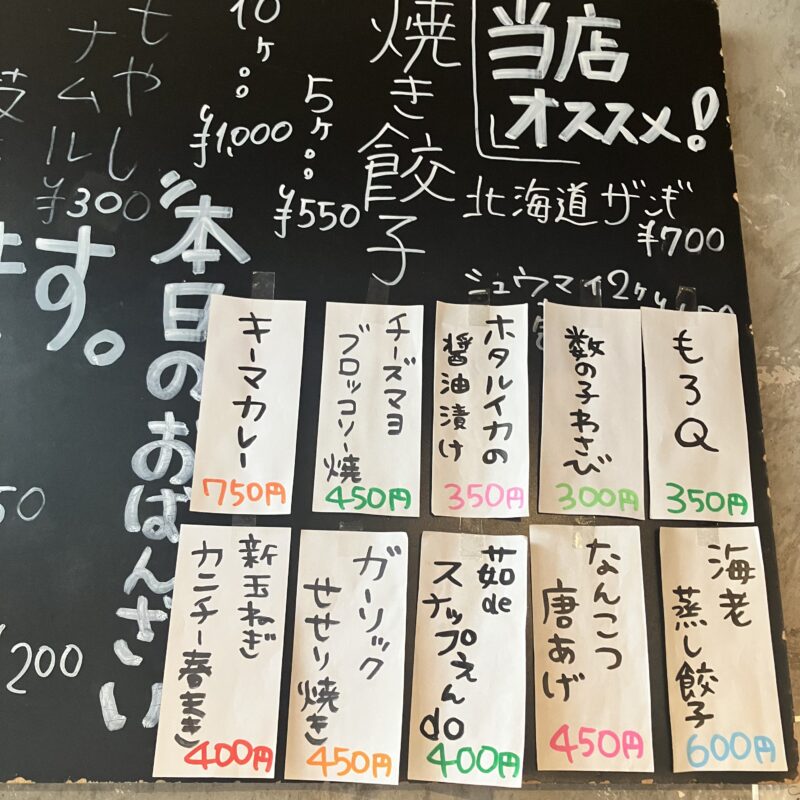 当店
オススメ!
北海道ザンギ
¥700
シュウマイ2ヶ
焼き餃子
5ヶ‥
¥550
10ヶ‥
¥1,000
もやし
ナムル
¥300
す。
本日のおばんざい
もろQ
350円
数の子わさび
300円
ホタルイカの
醤油漬け
350円
チーズマヨ
ブロッコリー焼
450円
キーマカレー
750円
海老
蒸し餃子
600円
なんこつ
唐あげ
450円
茹de
スナップえんdo
400円
ガーリック
せせり焼き
450円
新玉ねぎ
カニチー春まき
400円
200